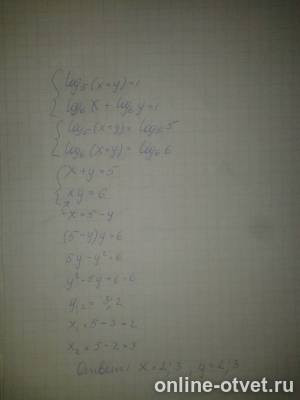 { log₅(x+y)=1
{ log₆ x + log₆ y = 1
{ log₅(x+y) = log₅ 5
{ log₆(x*y) = log₆ 6
{ x+y=5
{ xy=6
x=5-y
(5-y)y=6
5y-y²=6
y²-5y+6=0
y₁,₂= 3;2
x₁=5-3=2
x₂=5-2=3
Ответ: x=2;3, y=2;3
online-otvet.ru